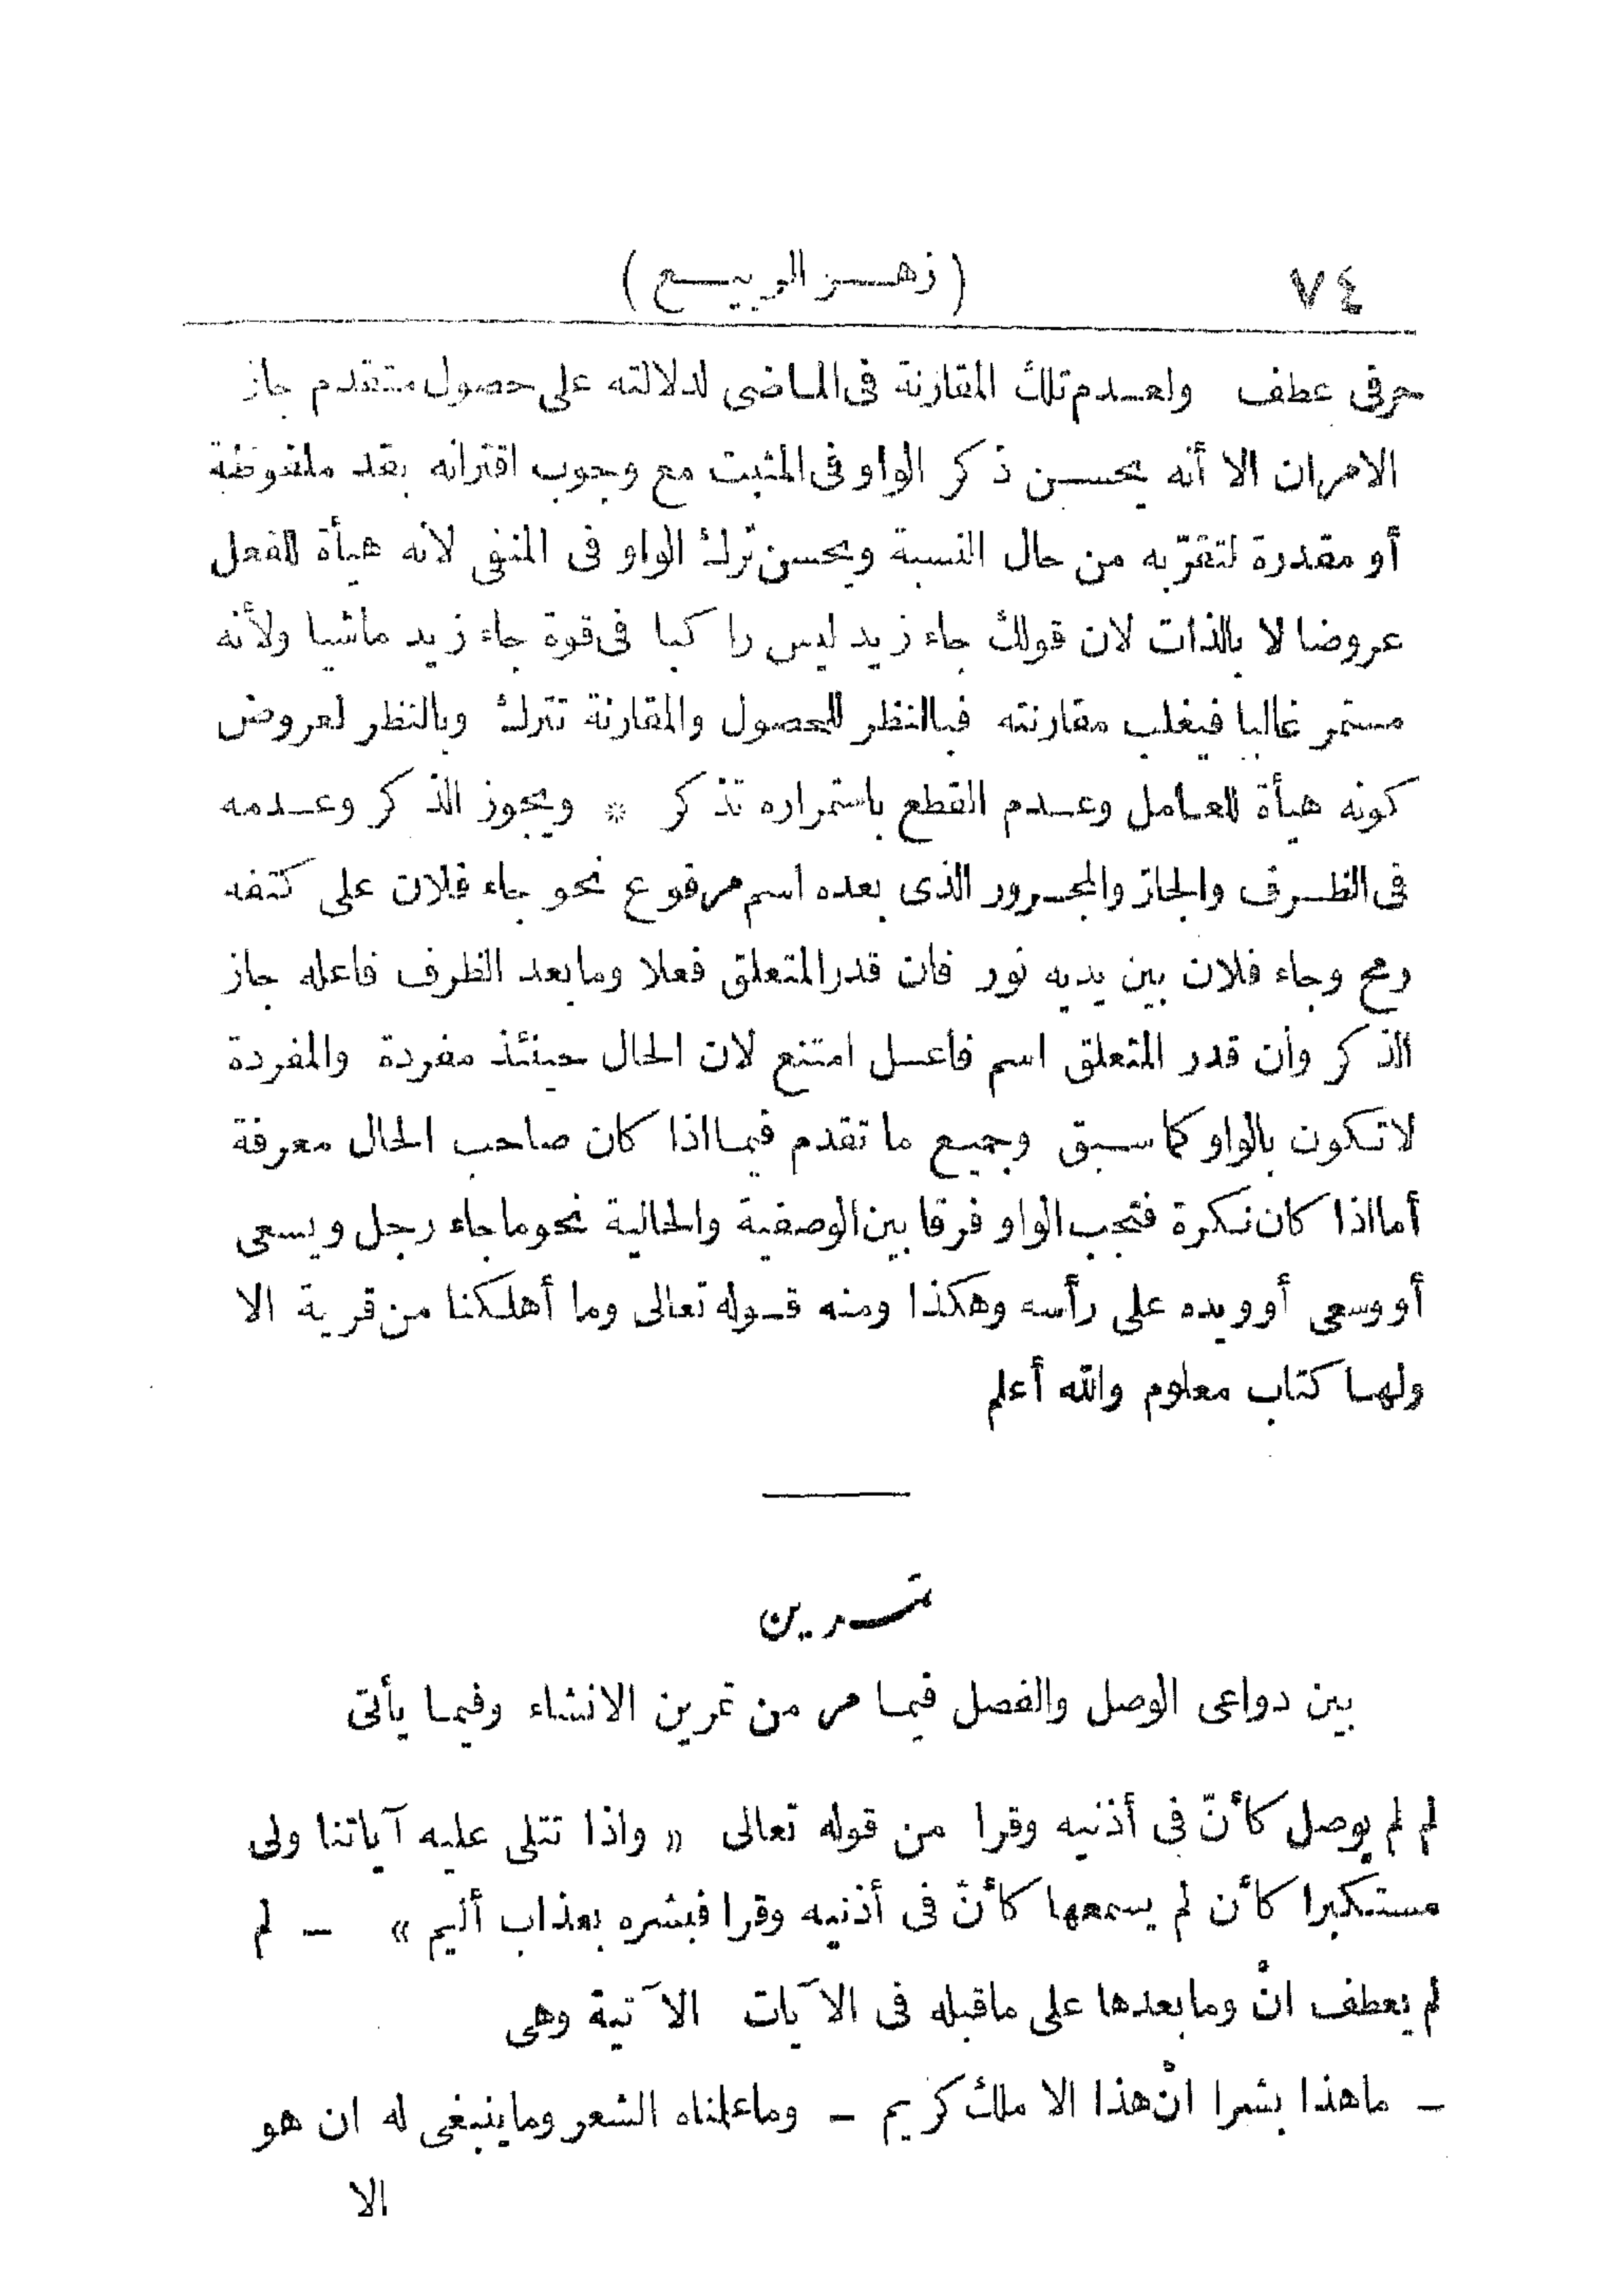 ٧٤
(زهـر الربيـع)
حرفى عطف ولعـدم تلك المقارنة فى الماضى لدلالته على حصول متقدم جاز
الامران الا أنه يحسـن ذكر الواو فى المثبت مع وجوب اقترانه بقد ملفوظة
أو مقدرة لتقرّبه من حال النسبة ويحسن ترك الواو فى المنفى لانه هيأة للفعل
عروضا لا بالذات لان قولك جاء زيد ليس راكبا فى قوة جاء زيد ماشيا ولأنه
مستمر غالبا فيغلب مقارنته فبالنظر للحصول والمقارنة تترك وبالنظر لعروض
كونه هيأة للعـامل وعـدم القطع باستمراره تذكر * ويجوز الذكر وعـدمه
فى الظـرف والجارّ والمجـرور الذى بعده اسم مرفوع نحو جاء فلان على كتفه
رمح وجاء فلان بين يديه نور فان قدر المتعلق فعلا وما بعد الظرف فاعله جاز
الذكر وان قدر المتعلق اسم فاعـل امتنع لان الحال حينئذ مفردة والمفردة
لاتكون بالواو كما سـبق وجميع ما تقدم فيما اذا كان صاحب الحال معرفة
أما اذا كان نكرة فتجب الواو فرقا بين الوصفية والحالية نحو ما جاء رجل ويسعى
أو وسعى أو ويده على رأسه وهكذا ومنه قـوله تعالى وما أهلكنا من قرية الا
ولهـا كتاب معلوم والله أعلم
تمـرين
بين دواعى الوصل والفصل فيما مر من تمرين الانشاء وفيما يأتى
لم لم يوصل كأنّ فى أذنيه وقرا من قوله تعالى « واذا تتلى عليه آياتنا ولى
مستكبرا كأن لم يسمعها كأنّ فى أذنيه وقرا فبشره بعذاب أليم » ـ لم
لم يعطف انْ وما بعدها على ماقبله فى الآيات الآتية وهى
ـ ماهذا بشرا انْ هذا الا ملك كريم ـ وماعلمناه الشعر وما ينبغى له ان هو
الا